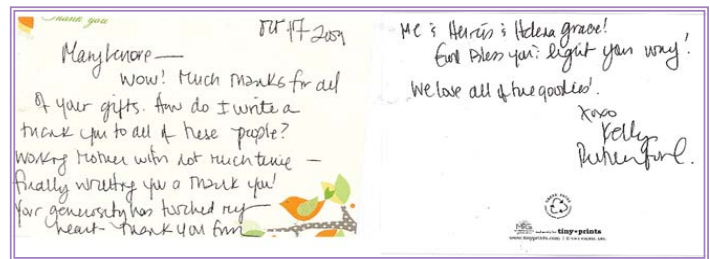 thank you
Oct 17 2009
Mary Lenore —
Wow! Much thanks for all
of your gifts. How do I write a
thank you to all of these people?
Working Mother with not much time —
finally writing you a thank you!
Your generosity has touched my
heart - thank you from
me & Hermés & Helena grace!
God Bless you & light your way!
We love all of the goodies!
xoxo
Kelly
Rutherford.
tiny prints
www.tinyprints.com